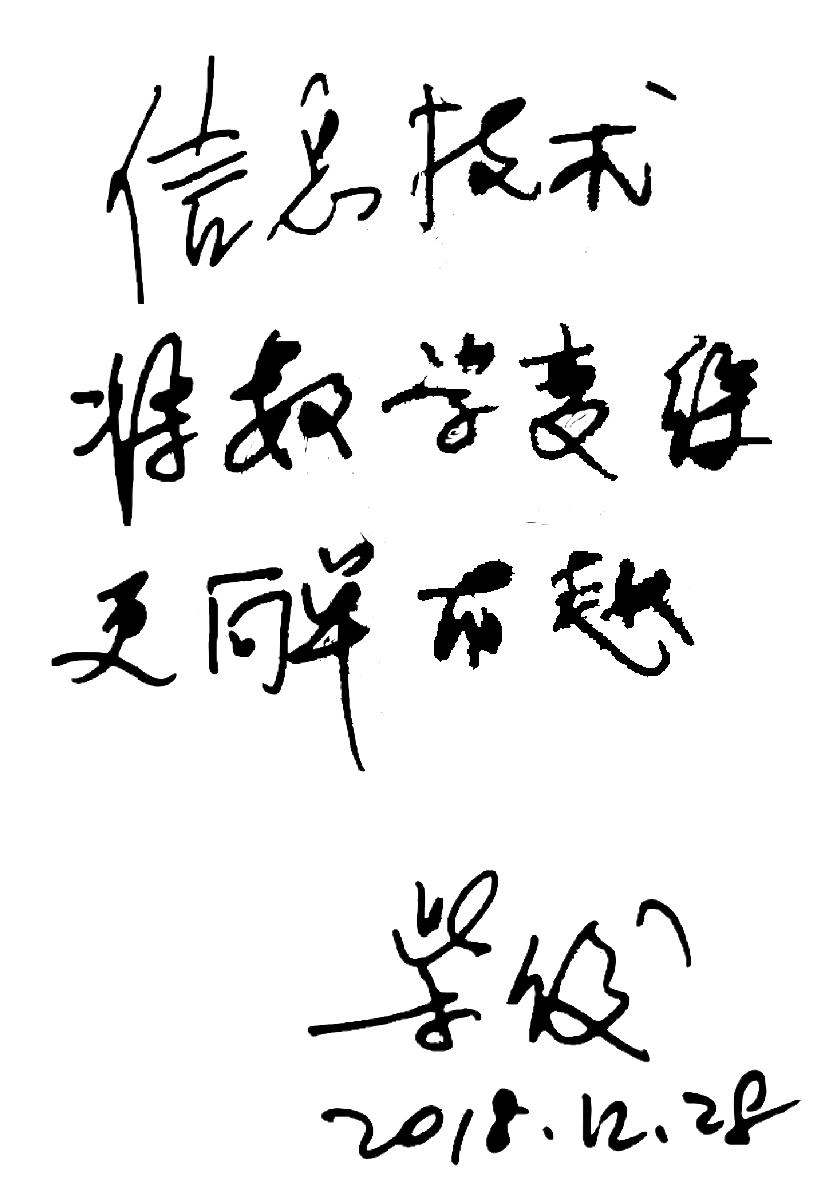 信息技术
将教学变得
更简单有趣
2018.12.28